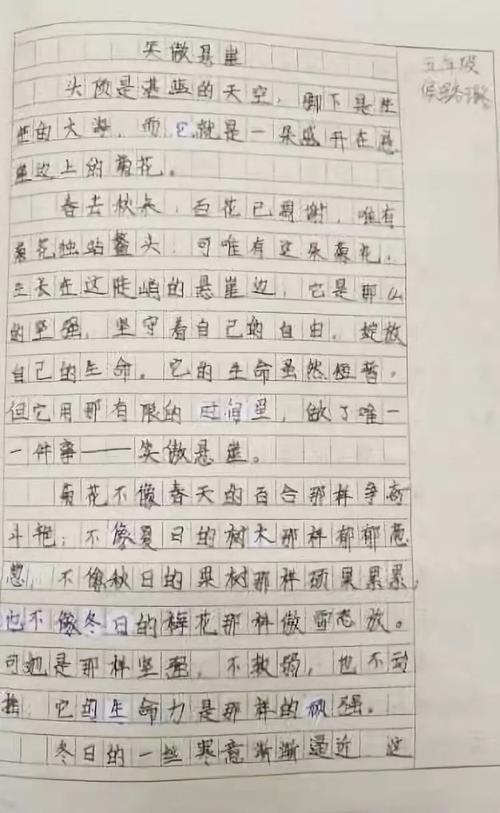 笑傲悬崖
五年级
头顶是湛蓝的天空，脚下是
的大海，而它就是一朵盛开在悬
崖边上的菊花。
春去秋来，百花已凋谢，唯有
菊花独站鳌头，可唯有这朵菊花，
生长在这陡峭的悬崖边，它是那么
的坚强，坚守着自己的自由，绽放
自己的生命。它的生命虽然短暂，
但它用那有限的时间里，做了唯一
一件事——笑傲悬崖。
菊花不像春天的百合那样争奇
斗艳；不像夏日的树木那样郁郁葱
葱，不像秋日的果树那样硕果累累，
也不像冬日的梅花那样傲雪怒放。
可她是那样坚强，不软弱，也不动
摇，它的生命力是那样的顽强。
冬日的一些寒意渐渐逼近 这